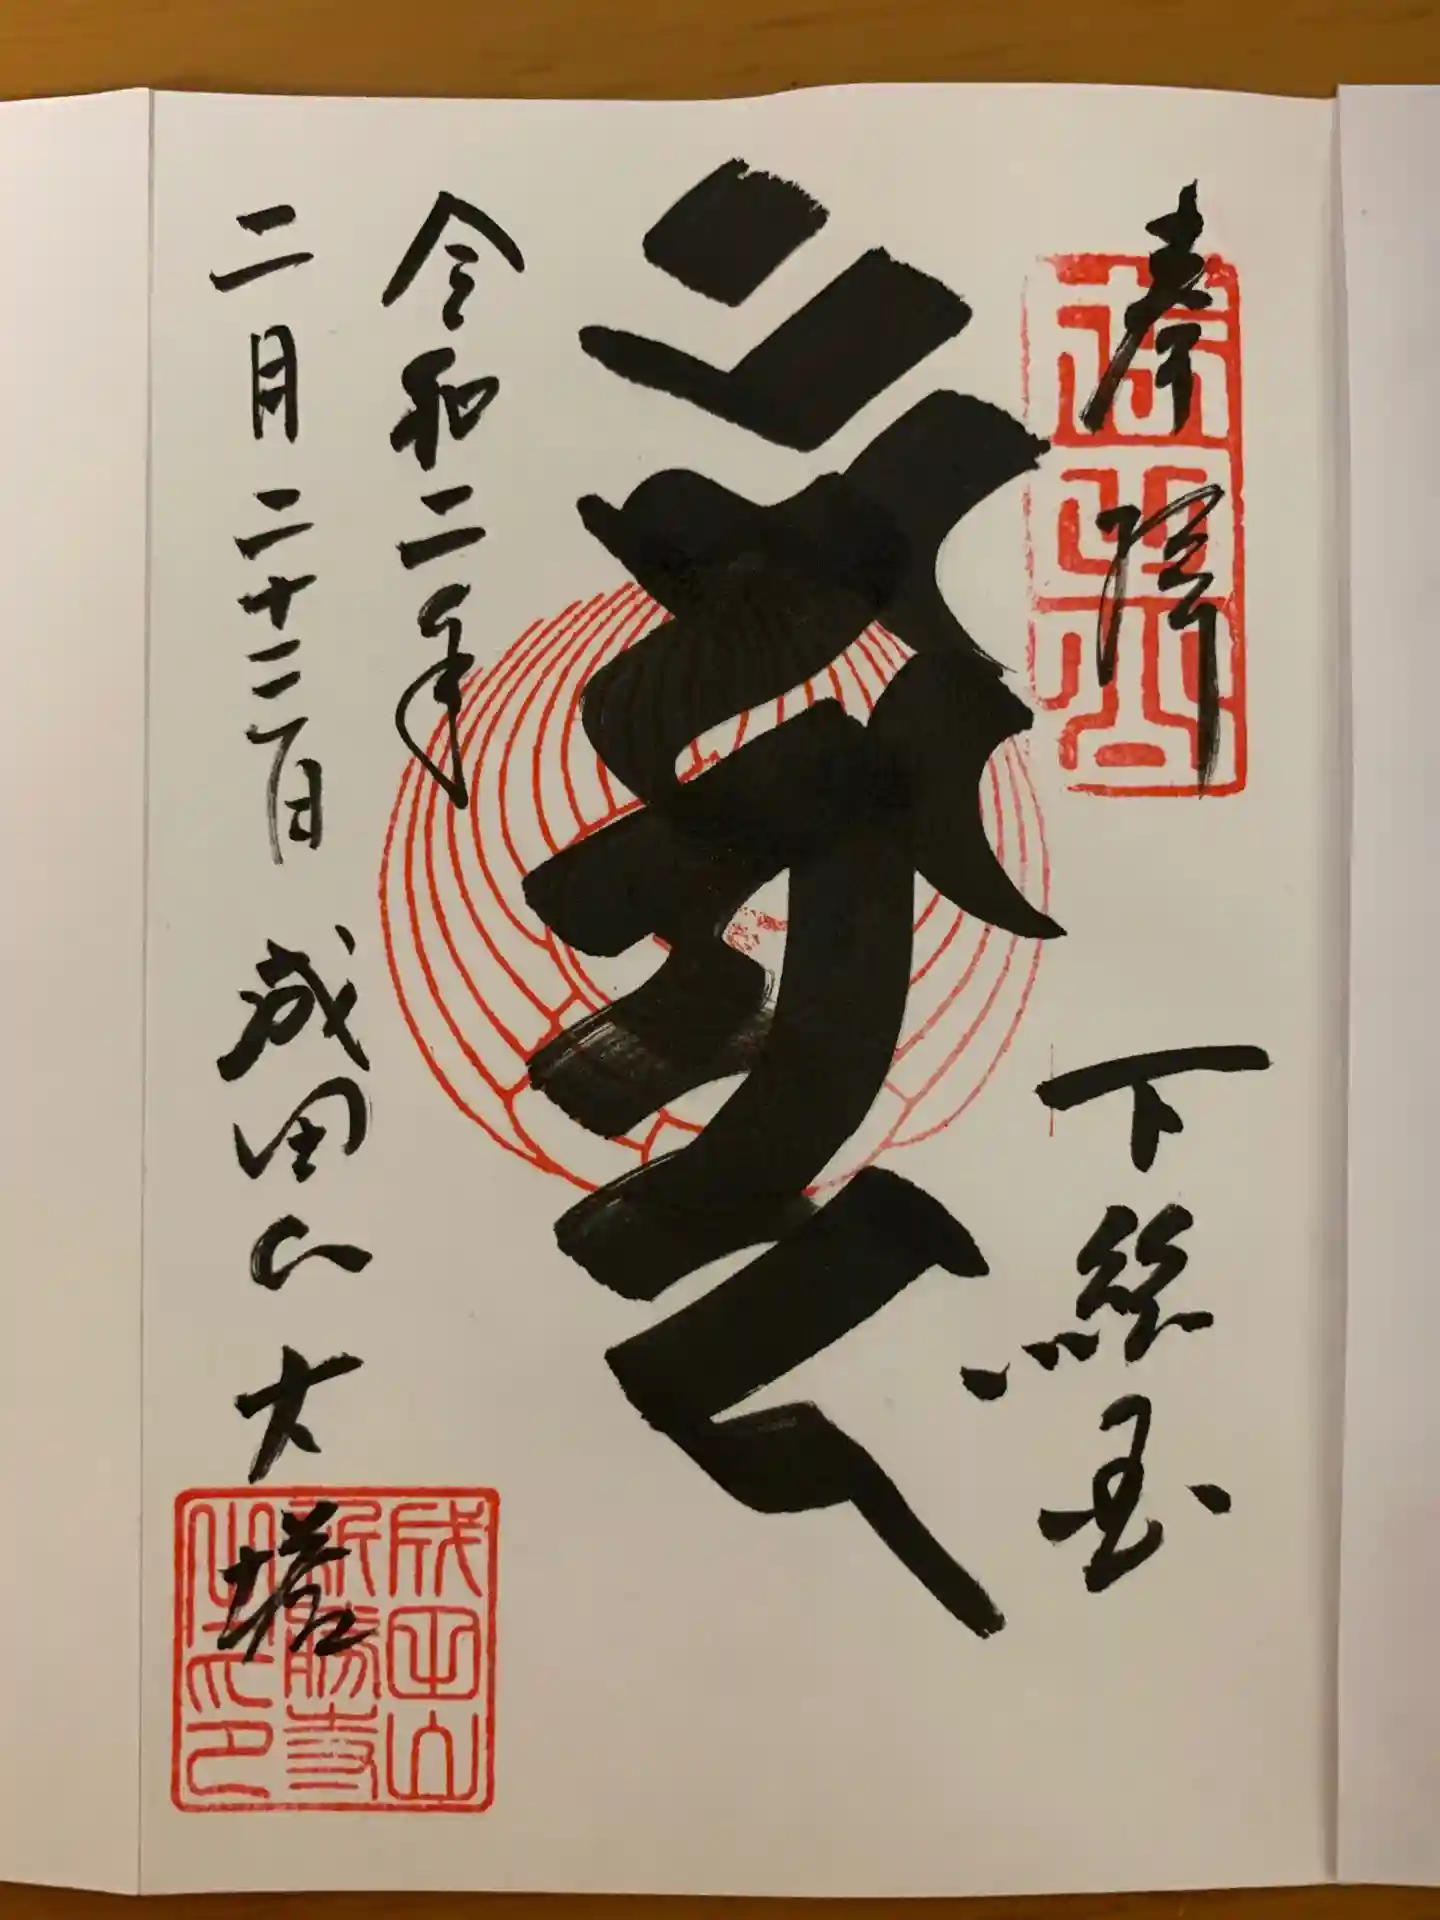 奉拝
下総国
令和二年
二月二十三日 成田山大塔
成田山
新勝寺